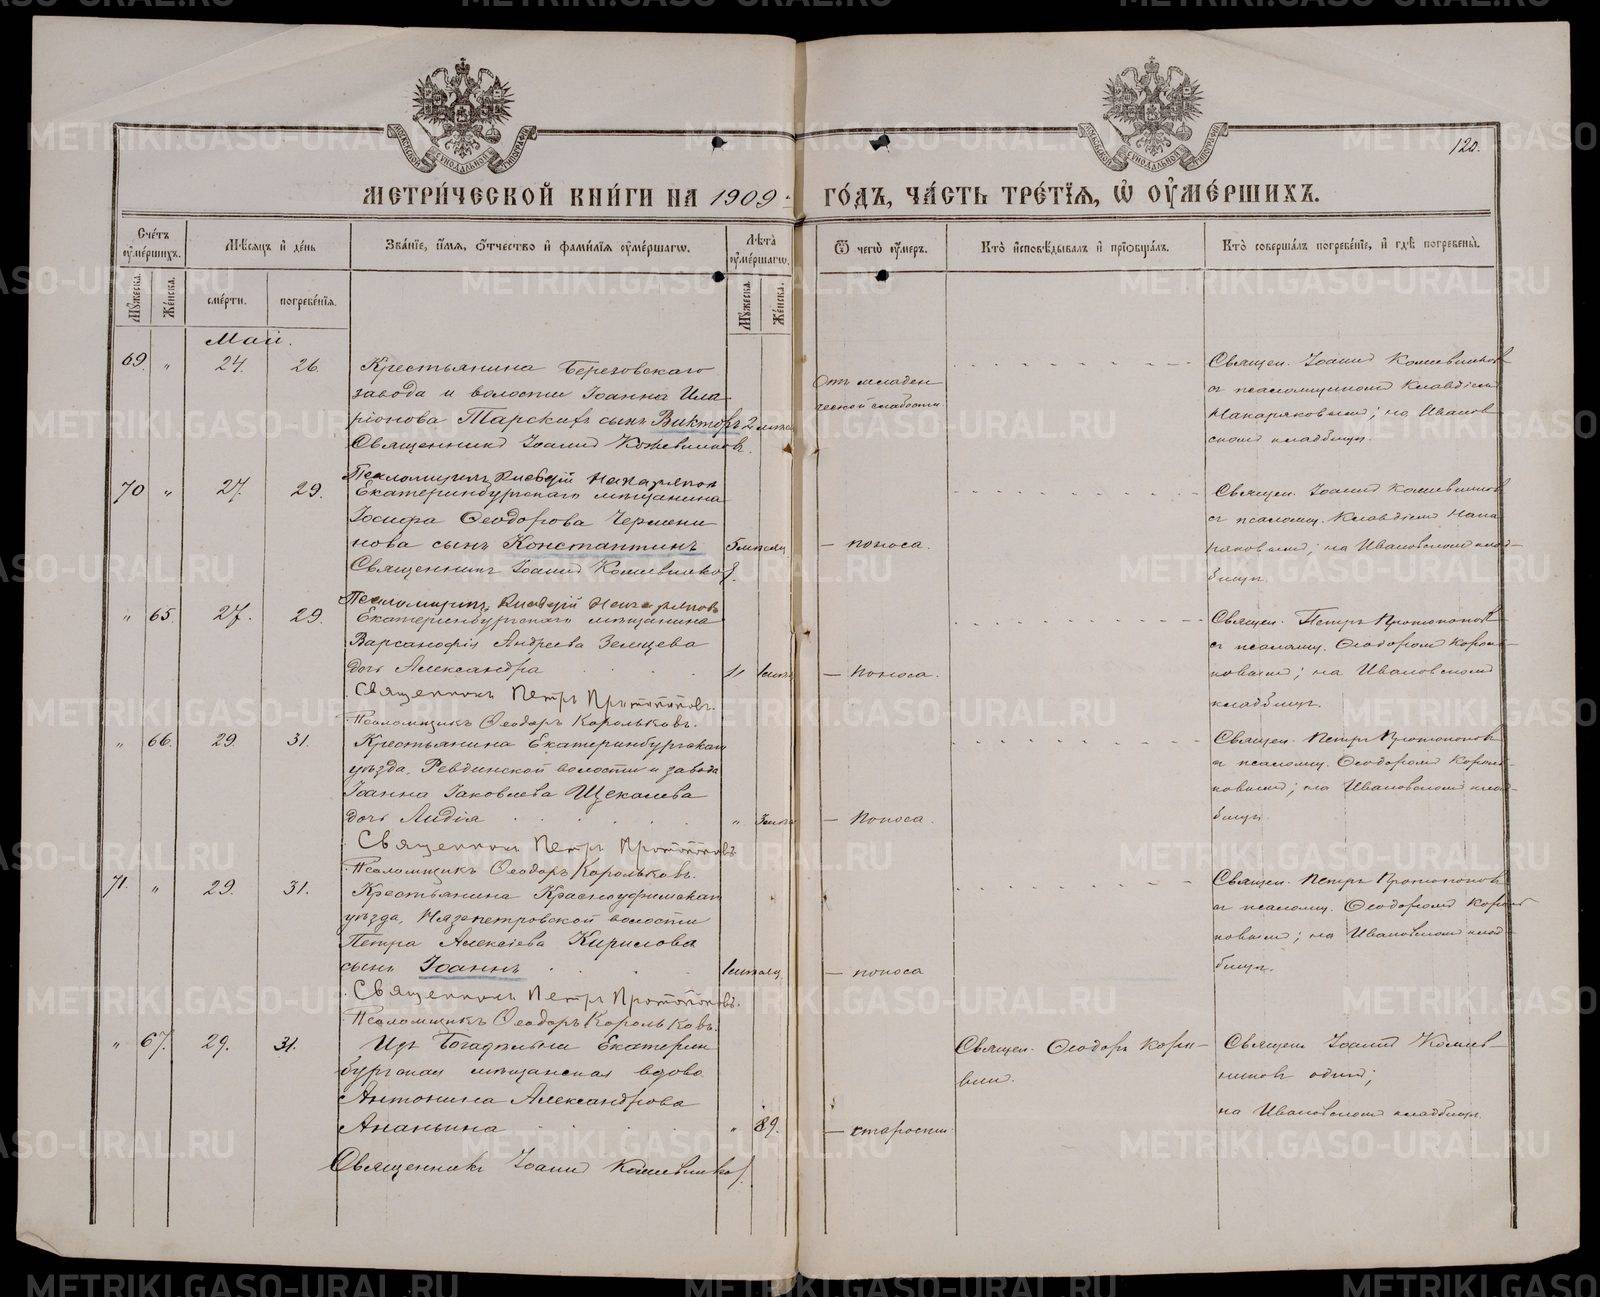 120.
МЕТРИ́ЧЕСКОЙ КНИ́ГИ НА 1909 ГО́ДЪ, ЧА́СТЬ ТРЕ́ТЇЯ, Ѡ҆ ОУ҆МЕ́РШИХЪ.
Сче́тъ оу҆ме́ршихъ.
Мꙋ́жеска.
Же́нска.
Мѣ́сѧцъ и҆ де́нь
сме́рти.
погребе́нїѧ.
Зва́нїе, и҆́мѧ, ѻ҆́тчество и҆ фами́лїѧ оу҆ме́ршагѡ.
Лѣ́та оу҆ме́ршагѡ.
Мꙋ́жеска.
Же́нска.
Ѿ чегѡ̀ оу҆́меръ.
Кто̀ и҆сповѣ́дывалъ и҆ прїѡбща́лъ.
Кто̀ соверша́лъ погребе́нїе, и҆ гдѣ̀ погребены̀.
Май.
69. " 24. 26.
Крестьянина Березовскаго
завода и волости Іоанна Ила
ріонова Тарскихъ сынъ Викторъ 2
Священникъ Іоаннъ Кожевниковъ.
Псаломщикъ Клавдій Макаряковъ
Отъ младен
ческой слабости
Священ. Іоаннъ Кожевниковъ
съ псаломщикомъ Клавдіемъ
Макаряковымъ; на Иванов
скомъ кладбищѣ.
70 " 27. 29.
Екатеринбургскаго мѣщанина
Іосифа Ѳеодорова Чермени
нова сынъ Константинъ 5 мѣсяц
Священникъ Іоаннъ Кожевниковъ.
Псаломщикъ Клавдій Макаряковъ
— поноса.
Священ. Іоаннъ Кожевниковъ
съ псаломщ. Клавдіемъ Мака
ряковымъ; на Ивановскомъ клад-
бищѣ.
" 65. 27. 29.
Екатеринбургскаго мѣщанина
Варсанофія Андреева Земцева
дочь Александра
Священникъ Петръ Протопоповъ.
Псаломщикъ Ѳеодоръ Корольковъ.
— поноса.
Священ. Петръ Протопоповъ
съ псаломщ. Ѳеодоромъ Король-
ковымъ; на Ивановскомъ
кладбищѣ.
" 66. 29. 31.
Крестьянина Екатеринбургскаго
уѣзда, Ревдинской волости и завода
Іоанна Іаковлева Щекалева
дочь Лидія "
Священникъ Петръ Протопоповъ
Псаломщикъ Ѳеодоръ Корольковъ.
— поноса.
Священ. Петръ Протопоповъ
съ псаломщ. Ѳеодоромъ Король-
ковымъ; на Ивановскомъ клад-
бищѣ.
71. " 29. 31.
Крестьянина Красноуфимскаго
уѣзда, Нязепетровской волости
Петра Алексіева Кирилова
сынъ Іоаннъ
Священникъ Петръ Протопоповъ.
Псаломщикъ Ѳеодоръ Корольковъ.
— поноса
Священ. Петръ Протопоповъ
съ псаломщ. Ѳеодоромъ Король
ковымъ; на Ивановскомъ клад-
бищѣ.
" 67. 29. 31.
Изъ Богадѣльни Екатерин
бургская мѣщанская вдова
Антонина Александрова
Ананьина " 89.
Священникъ Іоаннъ Кожевниковъ.
— старости.
Священ. Ѳеодоръ
Священ Іоаннъ Кожев-
никовъ одинъ;
на Ивановскомъ кладбищѣ.
METRIKI.GASO-URAL.RU